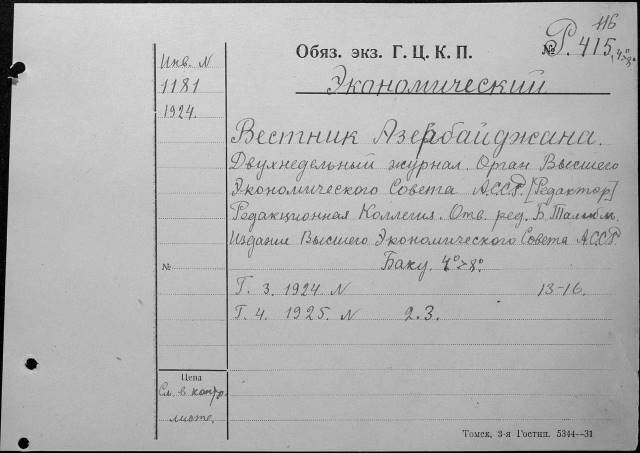 116
Обяз. экз. Г. Ц. К. П. № Р. 415, 4°>8°
Экономический
Инв. N
1181
1924.
Вестник Азербайджана.
Двухнедельный журнал. Орган Высшего
Экономического Совета А.С.С.Р. [Редактор]
Редакционная Коллегия. Отв. ред. Б.
Издание Высшего Экономического Совета А.С.С.Р.
Баку. 4°>8°.
№
Г. 3. 1924 N 13-16.
Г. 4. 1925. N 2.3.
Цена
См. в контр.
листе.
Томск, 3-я Гостип. 5344—31